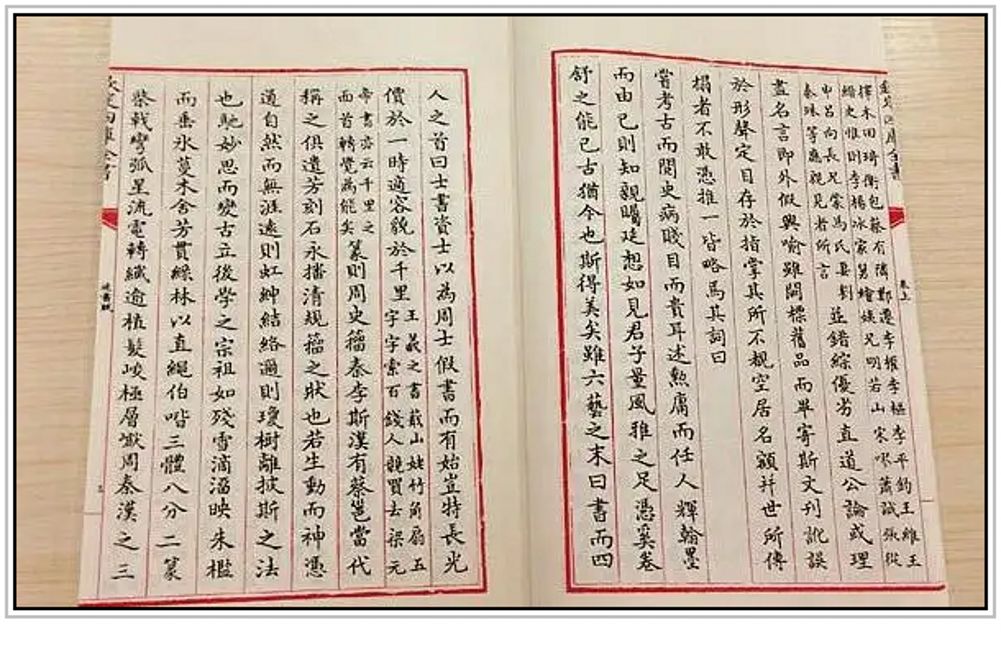 欽定四庫全書
卷上
擇木田琦衛包蔡有隣鄭遷李權李樞李平鈞王維王
縉史惟則李陽冰家舅繪族兄明若山宋蕭誠張從
申呂向長兄蒙馬氏妻劉
秦珠等應親見者所言
並錯綜優劣直道公論或理
盡名言即外假興喻雖闕標舊品而畢寄斯文刊訛誤
於形聲定目存於指掌其所不覩空居名額并世所傳
搨者不敢憑推一皆略焉其詞曰
嘗考古而閱史病賤目而貴耳述勲庸而任人輝翰墨
而由已則知親矚延想如見君子量風雅之足憑奚卷
舒之能已古猶今也斯得美矣雖六藝之末曰書而四
人之首曰士書資士以為周士假書而有始豈特長光
價於一時適容貌於千里
王羲之書蕺山姥竹角扇五
字字索百錢人競買去梁元
帝書亦云千里之
面首轉覺為能矣
篆則周史籀秦李斯漢有蔡邕當代
稱之俱遺芳刻石永播清規籀之狀也若生動而神憑
通自然而無涯遠則虹紳結絡邇則瓊樹離披斯之法
也馳妙思而變古立後學之宗祖如殘雪滴溜映朱檻
而垂氷蔓木含芳貫綠林以直繩伯喈三體八分二篆
棨戟彎弧星流電轉纖逾植髮峻極層巘周秦漢之三
欽定四庫全書
述書賦